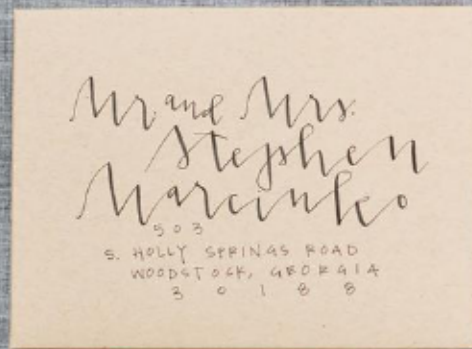 Mr and Mrs.
Stephen
Marcinko
503
S. HOLLY SPRINGS ROAD
WOODSTOCK, GEORGIA
30188